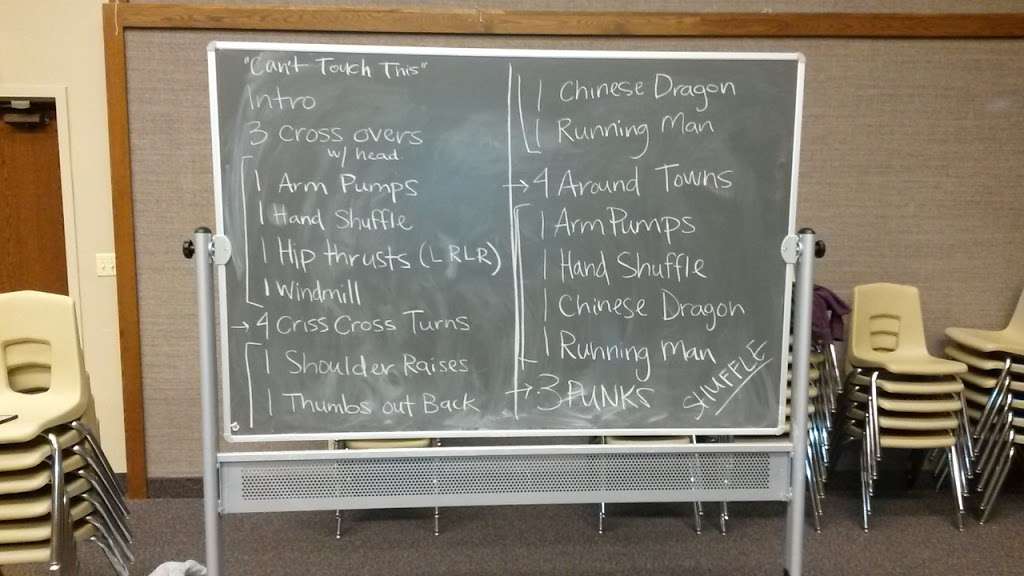 "Can't Touch This"
Intro
3 Cross overs
w/ head
1 Arm Pumps
1 Hand Shuffle
1 Hip thrusts (L RLR)
1 Windmill
→ 4 Criss Cross Turns
1 Shoulder Raises
1 Thumbs out Back
1 Chinese Dragon
1 Running Man
→ 4 Around Towns
1 Arm Pumps
1 Hand Shuffle
1 Chinese Dragon
1 Running Man
→ 3 PUNKS
SHUFFLE